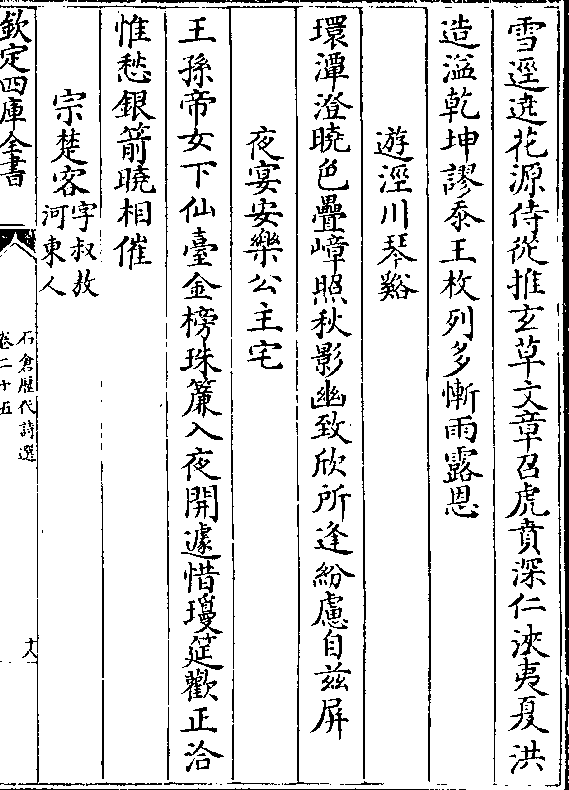 雪逕遶花源侍從推玄草文章召虎賁深仁浹夷夏洪
造溢乾坤謬忝王枚列多慚雨露恩
遊涇川琴谿
環潭澄曉色疊嶂照秋影幽致欣所逢紛慮自兹屏
夜宴安樂公主宅
王孫帝女下仙臺金榜珠簾入夜開遽惜瓊筵歡正洽
惟愁銀箭曉相催
宗楚客字叔敖河東人
欽定四庫全書
石倉歴代詩選
卷二十五
十八